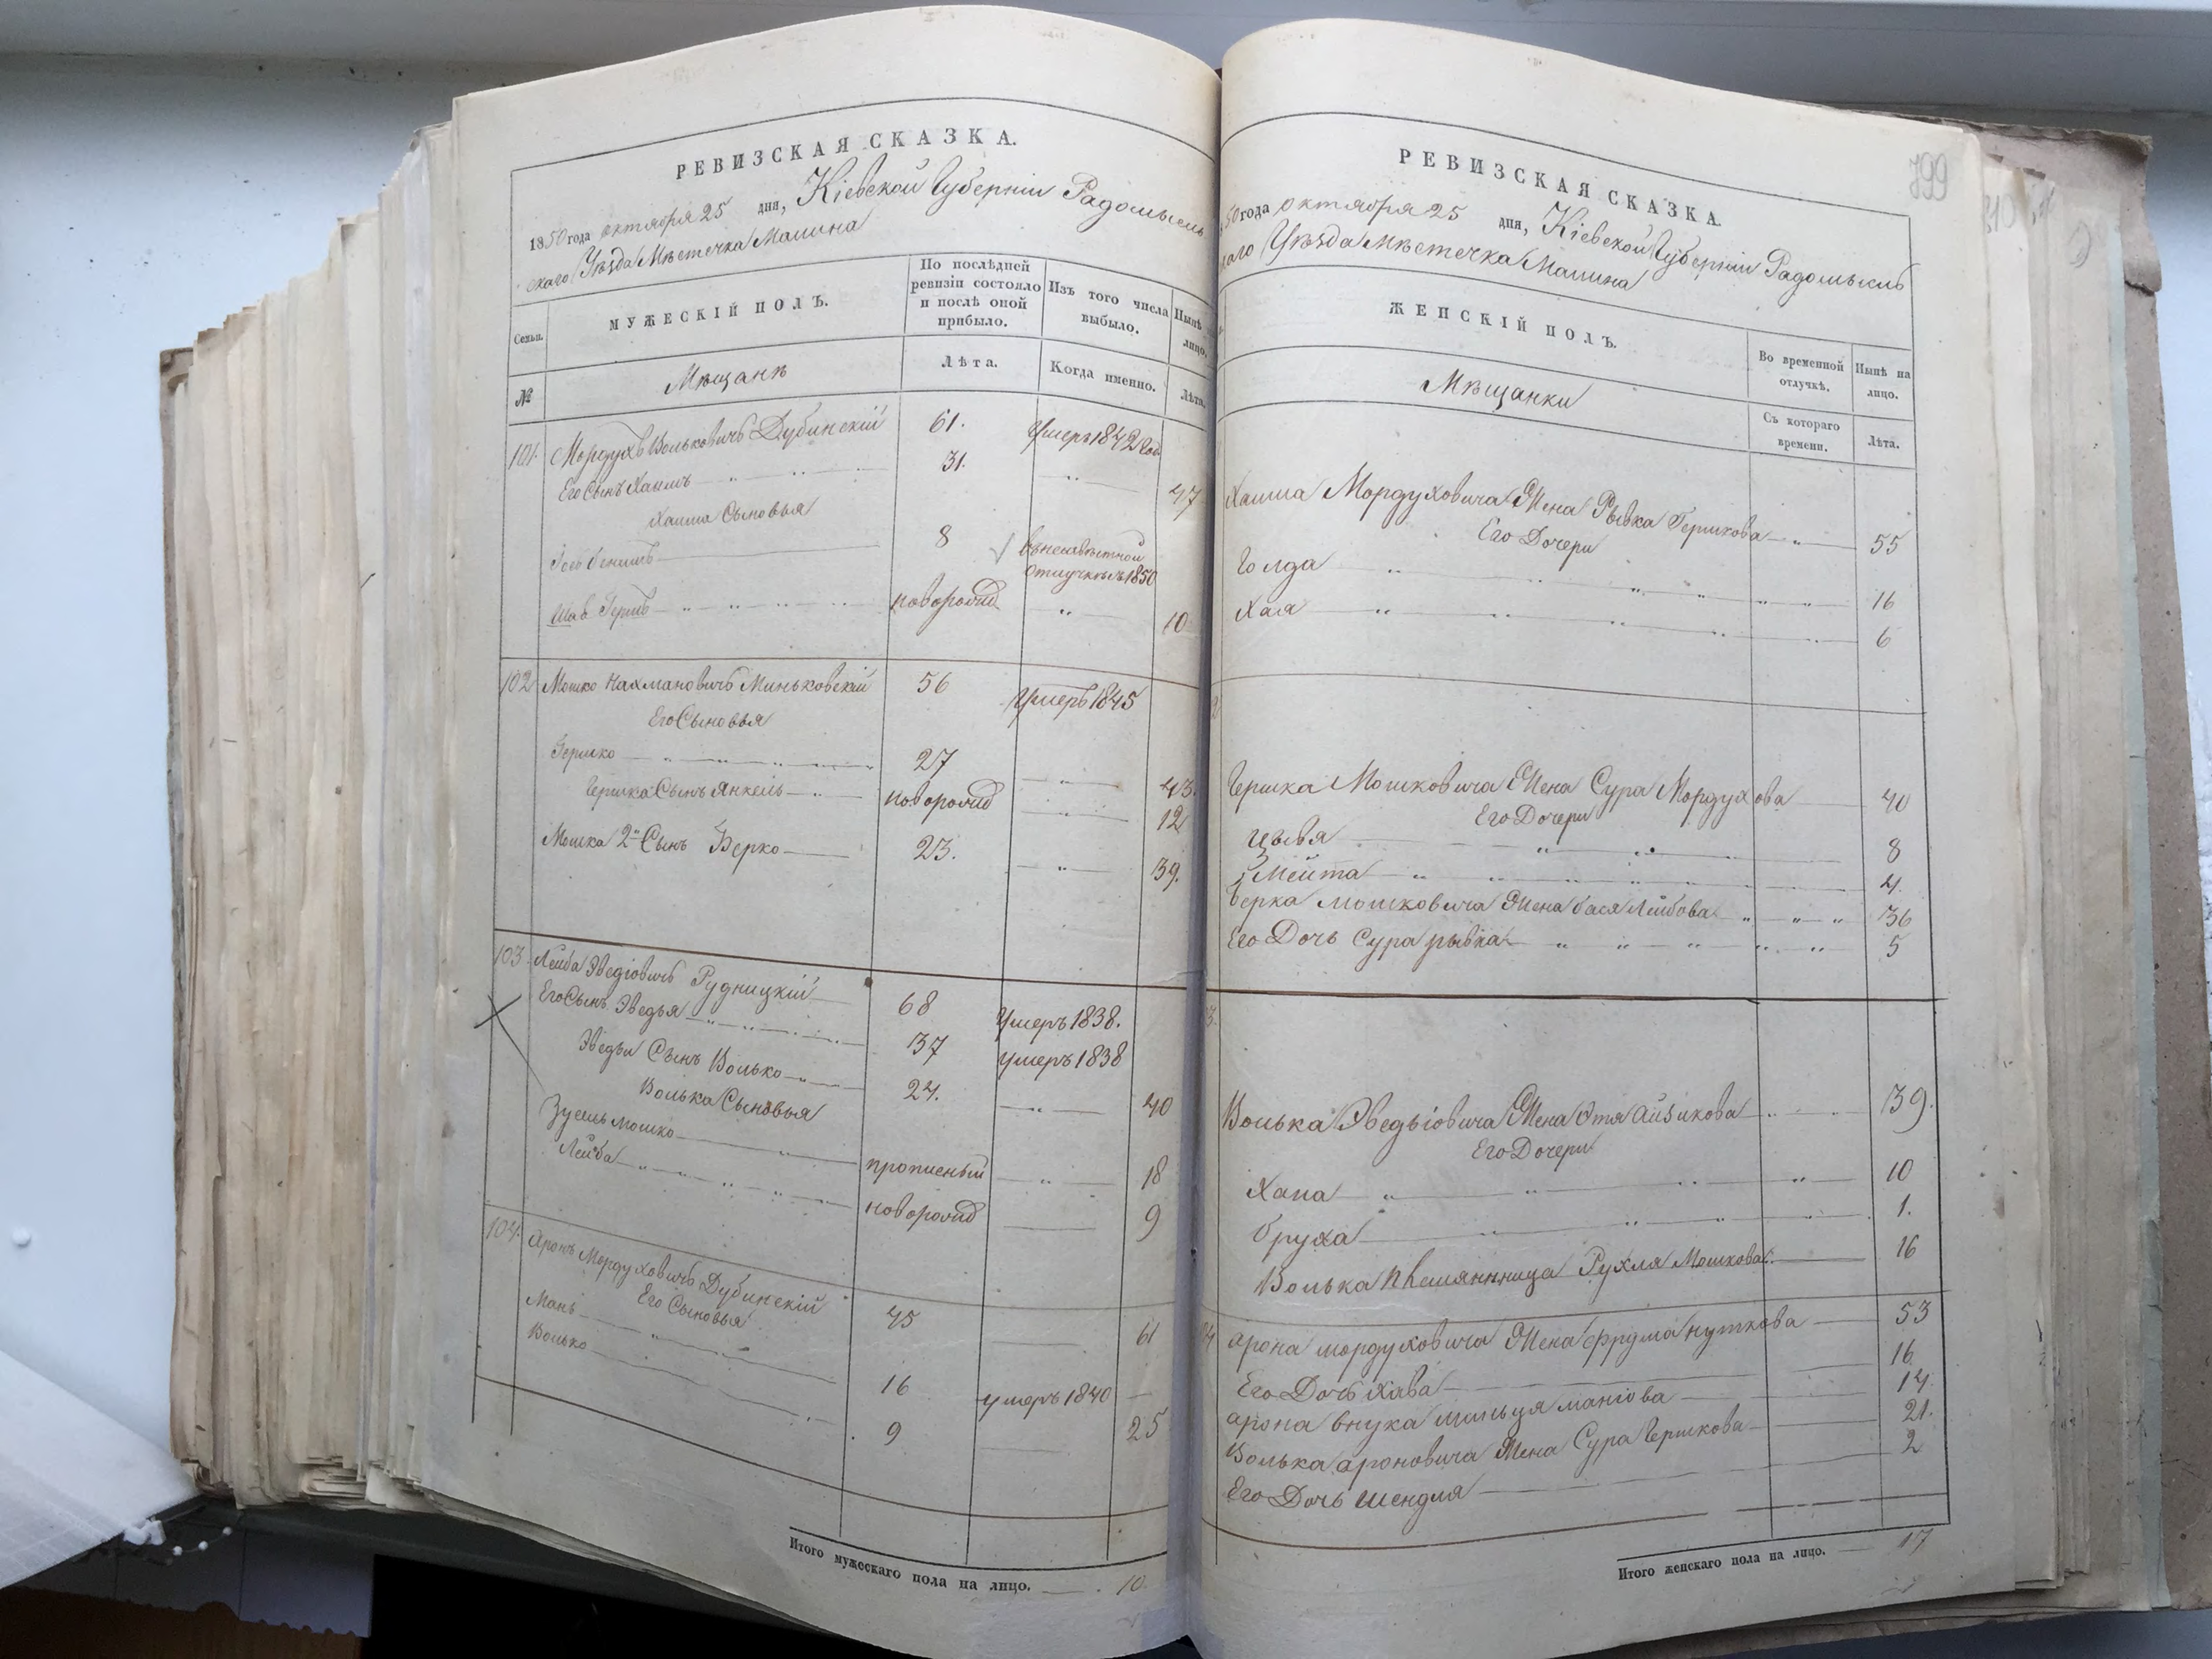 РЕВИЗСКАЯ СКАЗКА.
1850 года октября 25 дня, Кіевской Губерніи Радомысль
скаго Уѣзда Мѣстечка Малина
Семьи.
МУЖЕСКІЙ ПОЛЪ.
По послѣдней ревизіи состояло и послѣ оной прибыло.
Изъ того числа выбыло.
Нынѣ лицо.
№
Мѣщанѣ
Лѣта.
Когда именно.
Лѣта.
101. Мордухъ Вольковичъ Дубинскій 61. Умеръ 1842 год
Его Сынъ Хаимъ 31. 47
Хаима Сыновья
8 в неизвѣстной отлучкѣ съ 1850
Гершъ новорожд 10
102 Мошко Нахмановичъ Миньковскій 56 Умеръ 1845
Его Сыновья
Гершко 27 43.
Гершка Сынъ Янкель новорожд 12
Мошка 2й Сынъ Берко 23. 39.
103. Лейба Эведіовичъ Рудницкій 68 Умеръ 1838.
Его Сынъ Эведья 37 умеръ 1838
Эведьи Сынъ Волько 24. 40
Волька Сыновья
Зусь Мошко прописный 18
Лейба новорожд 9
104. Аронъ Мордуховичъ Дубинскій 45 61
Его Сыновья
Мань 16 умеръ 1840
Волько 9 25
Итого мужескаго пола на лицо. 10.
799
РЕВИЗСКАЯ СКАЗКА.
50 года октября 25 дня, Кіевской Губерніи Радомысль
каго Уѣзда Мѣстечка Малина
ЖЕНСКІЙ ПОЛЪ.
Во временной отлучкѣ.
Нынѣ на лицо.
Мѣщанки
Съ котораго времени.
Лѣта.
Хаима Мордуховича Жена Рывка Гершкова 55
Его Дочери
Голда 16
Хая 6
Гершка Мошковича Жена Сура Мордухова 40
Его Дочери
Цывя 8
Мейта 4.
Берка Мошковича Жена Бася Лейбова 36
Его Дочь Сура рывка 5
Волька Эведьіовича Жена Этя Айзикова 39.
Его Дочери
Хана 10
Бруха 1.
Волька племянница Рухля Мошкова 16
Арона Мордуховича Жена Фрума Нуткова 53
Его Дочь Хава 16
Арона внука маніова 14.
Волька Ароновича Жена Сура Гершкова 21.
Его Дочь Шендля 2
Итого женскаго пола на лицо. 17